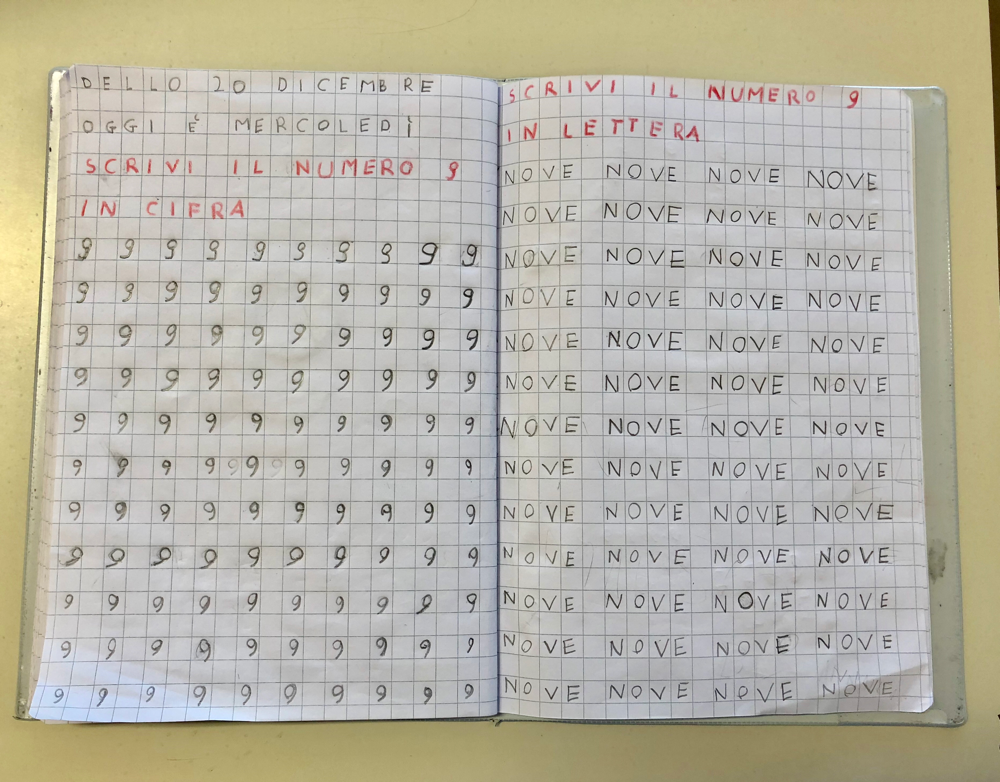 DELLO 20 DICEMBRE
OGGI È MERCOLEDÌ
SCRIVI IL NUMERO 9
IN CIFRA
9 9 9 9 9 9 9 9 9 9
9 9 9 9 9 9 9 9 9 9
9 9 9 9 9 9 9 9 9 9
9 9 9 9 9 9 9 9 9 9
9 9 9 9 9 9 9 9 9 9
9 9 9 9 9 9 9 9 9 9
9 9 9 9 9 9 9 9 9 9
9 9 9 9 9 9 9 9 9 9
9 9 9 9 9 9 9 9 9 9
9 9 9 9 9 9 9 9 9 9
9 9 9 9 9 9 9 9 9 9
SCRIVI IL NUMERO 9
IN LETTERA
NOVE NOVE NOVE NOVE
NOVE NOVE NOVE NOVE
NOVE NOVE NOVE NOVE
NOVE NOVE NOVE NOVE
NOVE NOVE NOVE NOVE
NOVE NOVE NOVE NOVE
NOVE NOVE NOVE NOVE
NOVE NOVE NOVE NOVE
NOVE NOVE NOVE NOVE
NOVE NOVE NOVE NOVE
NOVE NOVE NOVE NOVE
NOVE NOVE NOVE NOVE
NOVE NOVE NOVE NOVE